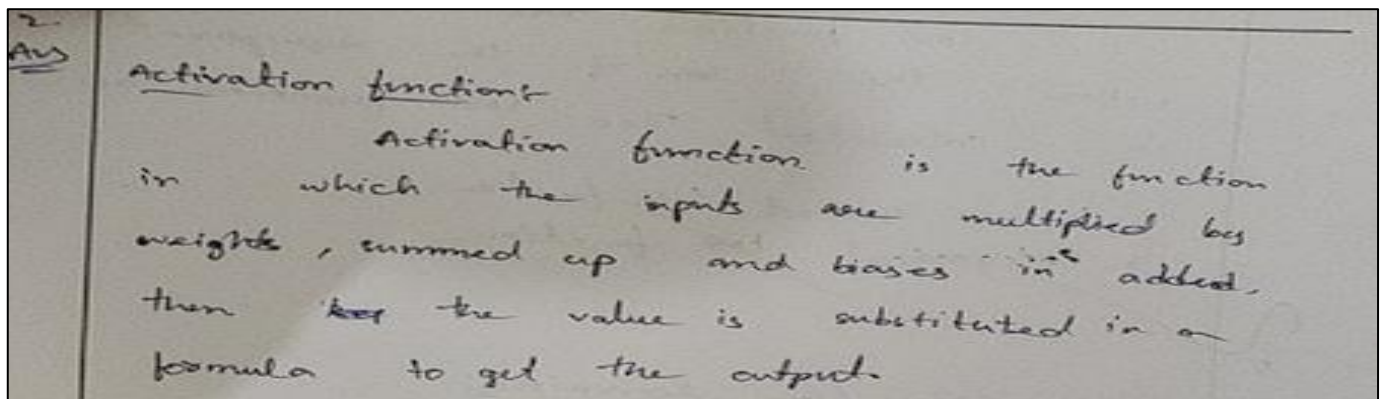 2.
Ans
Activation function:-
Activation function is the function
in which the inputs are multiplied by
weights, summed up and biases is added.
then the value is substituted in a
formula to get the output.